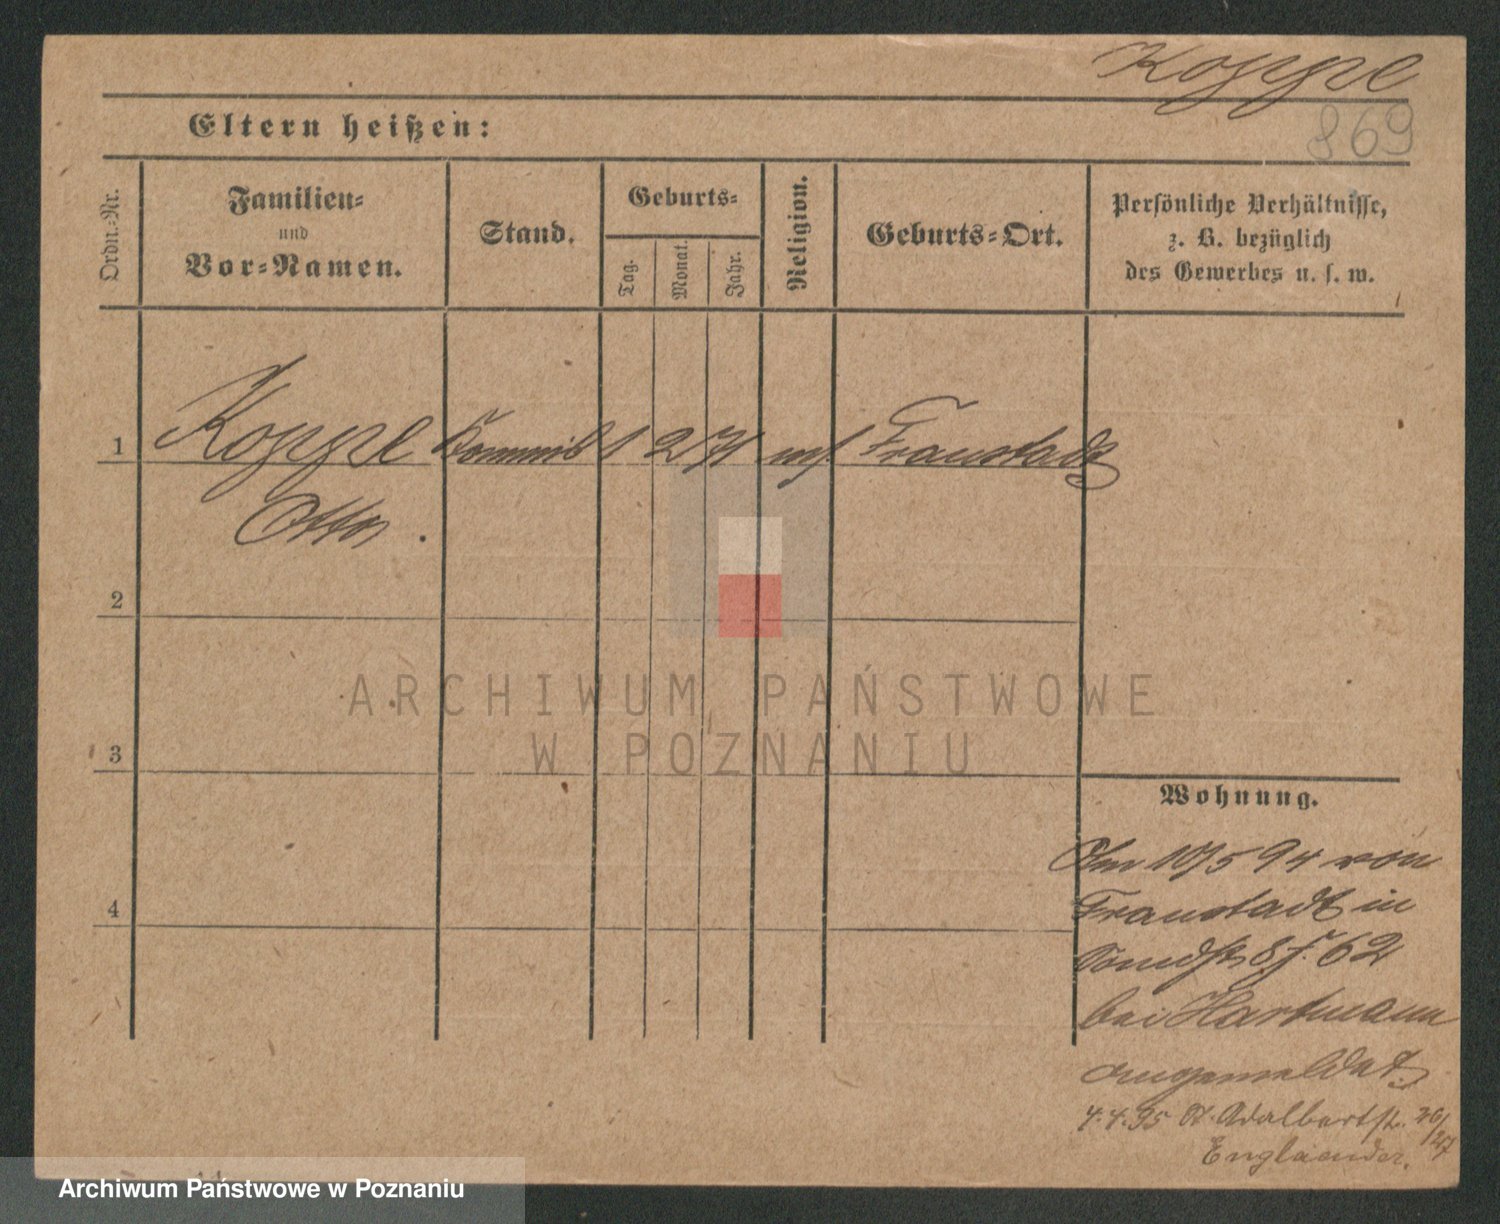 Koppe
869
Eltern heißen:
Ordn.-Nr.
Familien-
und
Vor-Namen.
Stand.
Geburts-
Tag.
Monat.
Jahr.
Religion.
Geburts-Ort.
Persönliche Verhältnisse,
z. B. bezüglich
des Gewerbes u. s. w.
1 Koppe Kommis 1 2 71 Fraustadt
Otto.
2
3
4
Wohnung.
Am 10/5 94 von
Fraustadt in
62
bei Hartmann
angemeldet.
4.4.95 St. Adalbertstr. 26/27
Englaender.
ARCHIWUM PAŃSTWOWE
W POZNANIU
Archiwum Państwowe w Poznaniu